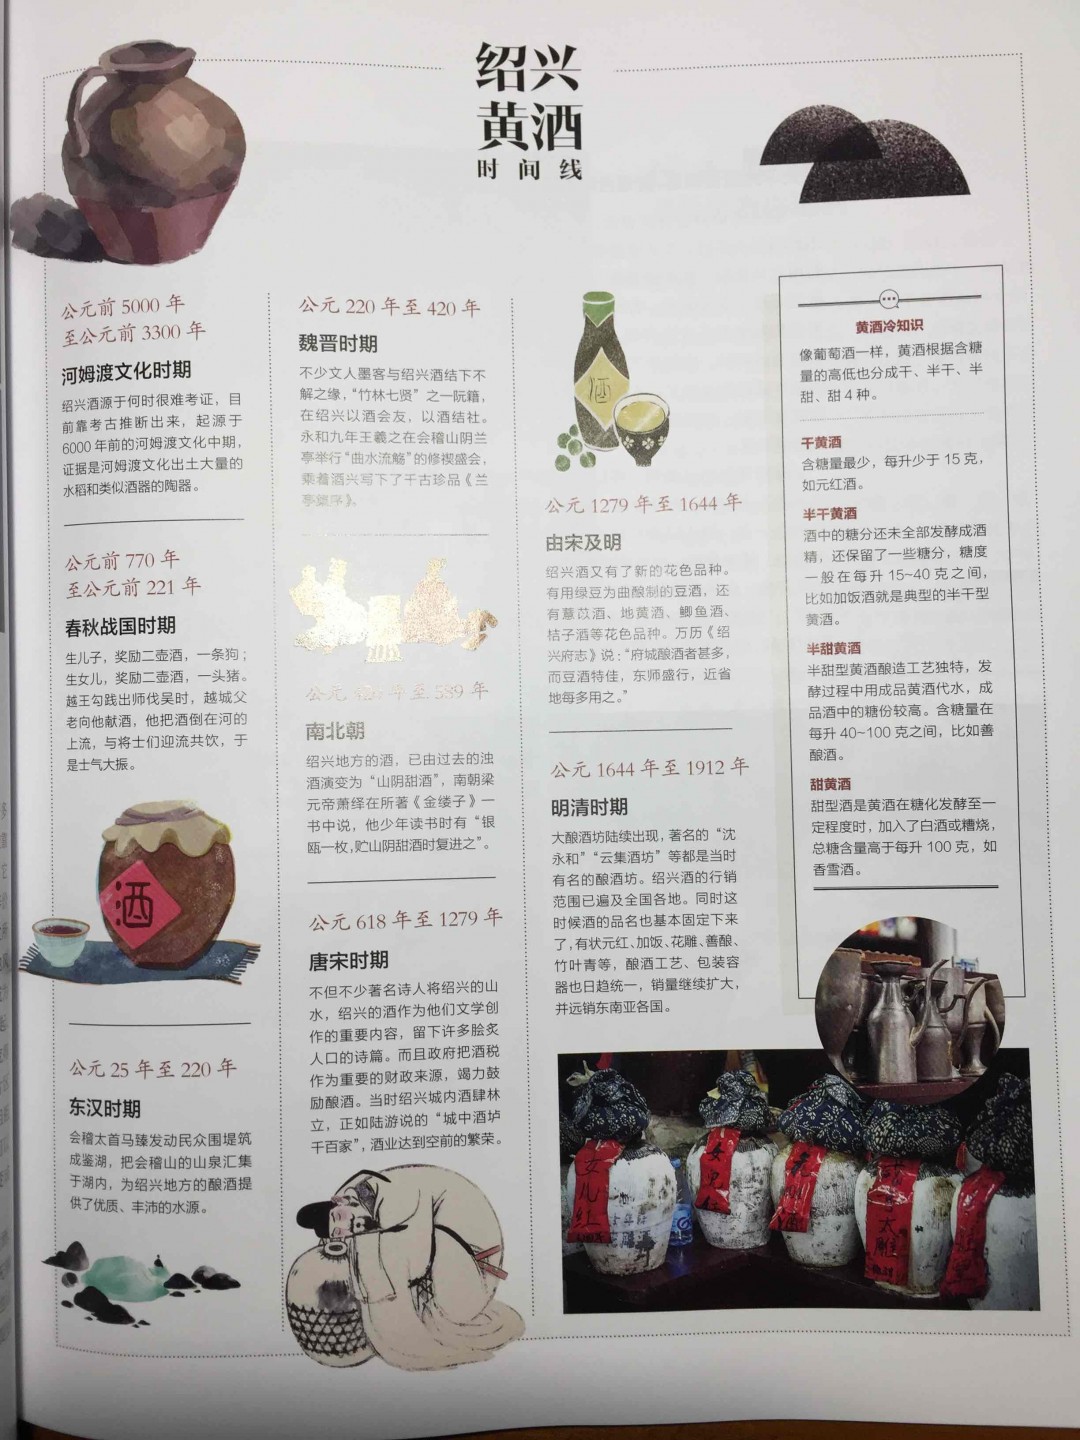 绍兴
黄酒
时间线
公元前 5000 年
至公元前 3300 年
河姆渡文化时期
绍兴酒源于何时很难考证，目
前靠考古推断出来，起源于
6000 年前的河姆渡文化中期，
证据是河姆渡文化出土大量的
水稻和类似酒器的陶器。
公元前 770 年
至公元前 221 年
春秋战国时期
生儿子，奖励二壶酒，一条狗；
生女儿，奖励二壶酒，一头猪。
越王勾践出师伐吴时，越城父
老向他献酒，他把酒倒在河的
上流，与将士们迎流共饮，于
是士气大振。
酒
公元 25 年至 220 年
东汉时期
会稽太首马臻发动民众围堤筑
成鉴湖，把会稽山的山泉汇集
于湖内，为绍兴地方的酿酒提
供了优质、丰沛的水源。
公元 220 年至 420 年
魏晋时期
不少文人墨客与绍兴酒结下不
解之缘，“竹林七贤”之一阮籍，
在绍兴以酒会友，以酒结社。
永和九年王羲之在会稽山阴兰
亭举行“曲水流觞”的修禊盛会，
乘着酒兴写下了千古珍品《兰
亭集序》。
公元 年至 589 年
南北朝
绍兴地方的酒，已由过去的浊
酒演变为“山阴甜酒”，南朝梁
元帝萧绎在所著《金缕子》一
书中说，他少年读书时有“银
瓯一枚，贮山阴甜酒时复进之”。
公元 618 年至 1279 年
唐宋时期
不但不少著名诗人将绍兴的山
水，绍兴的酒作为他们文学创
作的重要内容，留下许多脍炙
人口的诗篇。而且政府把酒税
作为重要的财政来源，竭力鼓
励酿酒。当时绍兴城内酒肆林
立，正如陆游说的“城中酒垆
千百家”，酒业达到空前的繁荣。
酒
公元 1279 年至 1644 年
由宋及明
绍兴酒又有了新的花色品种。
有用绿豆为曲酿制的豆酒，还
有薏苡酒、地黄酒、鲫鱼酒、
桔子酒等花色品种。万历《绍
兴府志》说：“府城酿酒者甚多，
而豆酒特佳，东师盛行，近省
地每多用之。”
公元 1644 年至 1912 年
明清时期
大酿酒坊陆续出现，著名的“沈
永和”“云集酒坊”等都是当时
有名的酿酒坊。绍兴酒的行销
范围已遍及全国各地。同时这
时候酒的品名也基本固定下来
了，有状元红、加饭、花雕、善酿、
竹叶青等，酿酒工艺、包装容
器也日趋统一，销量继续扩大，
并远销东南亚各国。
黄酒冷知识
像葡萄酒一样，黄酒根据含糖
量的高低也分成干、半干、半
甜、甜 4 种。
干黄酒
含糖量最少，每升少于 15 克，
如元红酒。
半干黄酒
酒中的糖分还未全部发酵成酒
精，还保留了一些糖分，糖度
一般在每升 15~40 克之间，
比如加饭酒就是典型的半干型
黄酒。
半甜黄酒
半甜型黄酒酿造工艺独特，发
酵过程中用成品黄酒代水，成
品酒中的糖份较高。含糖量在
每升 40~100 克之间，比如善
酿酒。
甜黄酒
甜型酒是黄酒在糖化发酵至一
定程度时，加入了白酒或糟烧，
总糖含量高于每升 100 克，如
香雪酒。
女儿红
女儿红
太雕